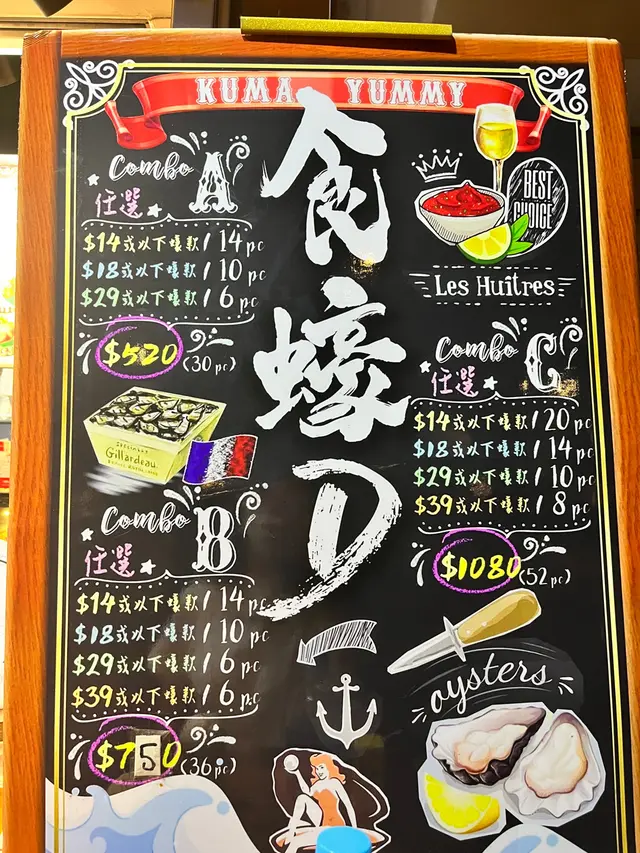 KUMA YUMMY
食蠔D
Combo A
任選
$14或以下蠔款 / 14 pc
$18或以下蠔款 / 10 pc
$29或以下蠔款 / 6 pc
$520 (30 pc)
Gillardeau
Combo B
任選
$14或以下蠔款 / 14 pc
$18或以下蠔款 / 10 pc
$29或以下蠔款 / 6 pc
$39或以下蠔款 / 6 pc
$750 (36 pc)
BEST
CHOICE
Les Huîtres
Combo C
任選
$14或以下蠔款 / 20 pc
$18或以下蠔款 / 14 pc
$29或以下蠔款 / 10 pc
$39或以下蠔款 / 8 pc
$1080 (52 pc)
oysters